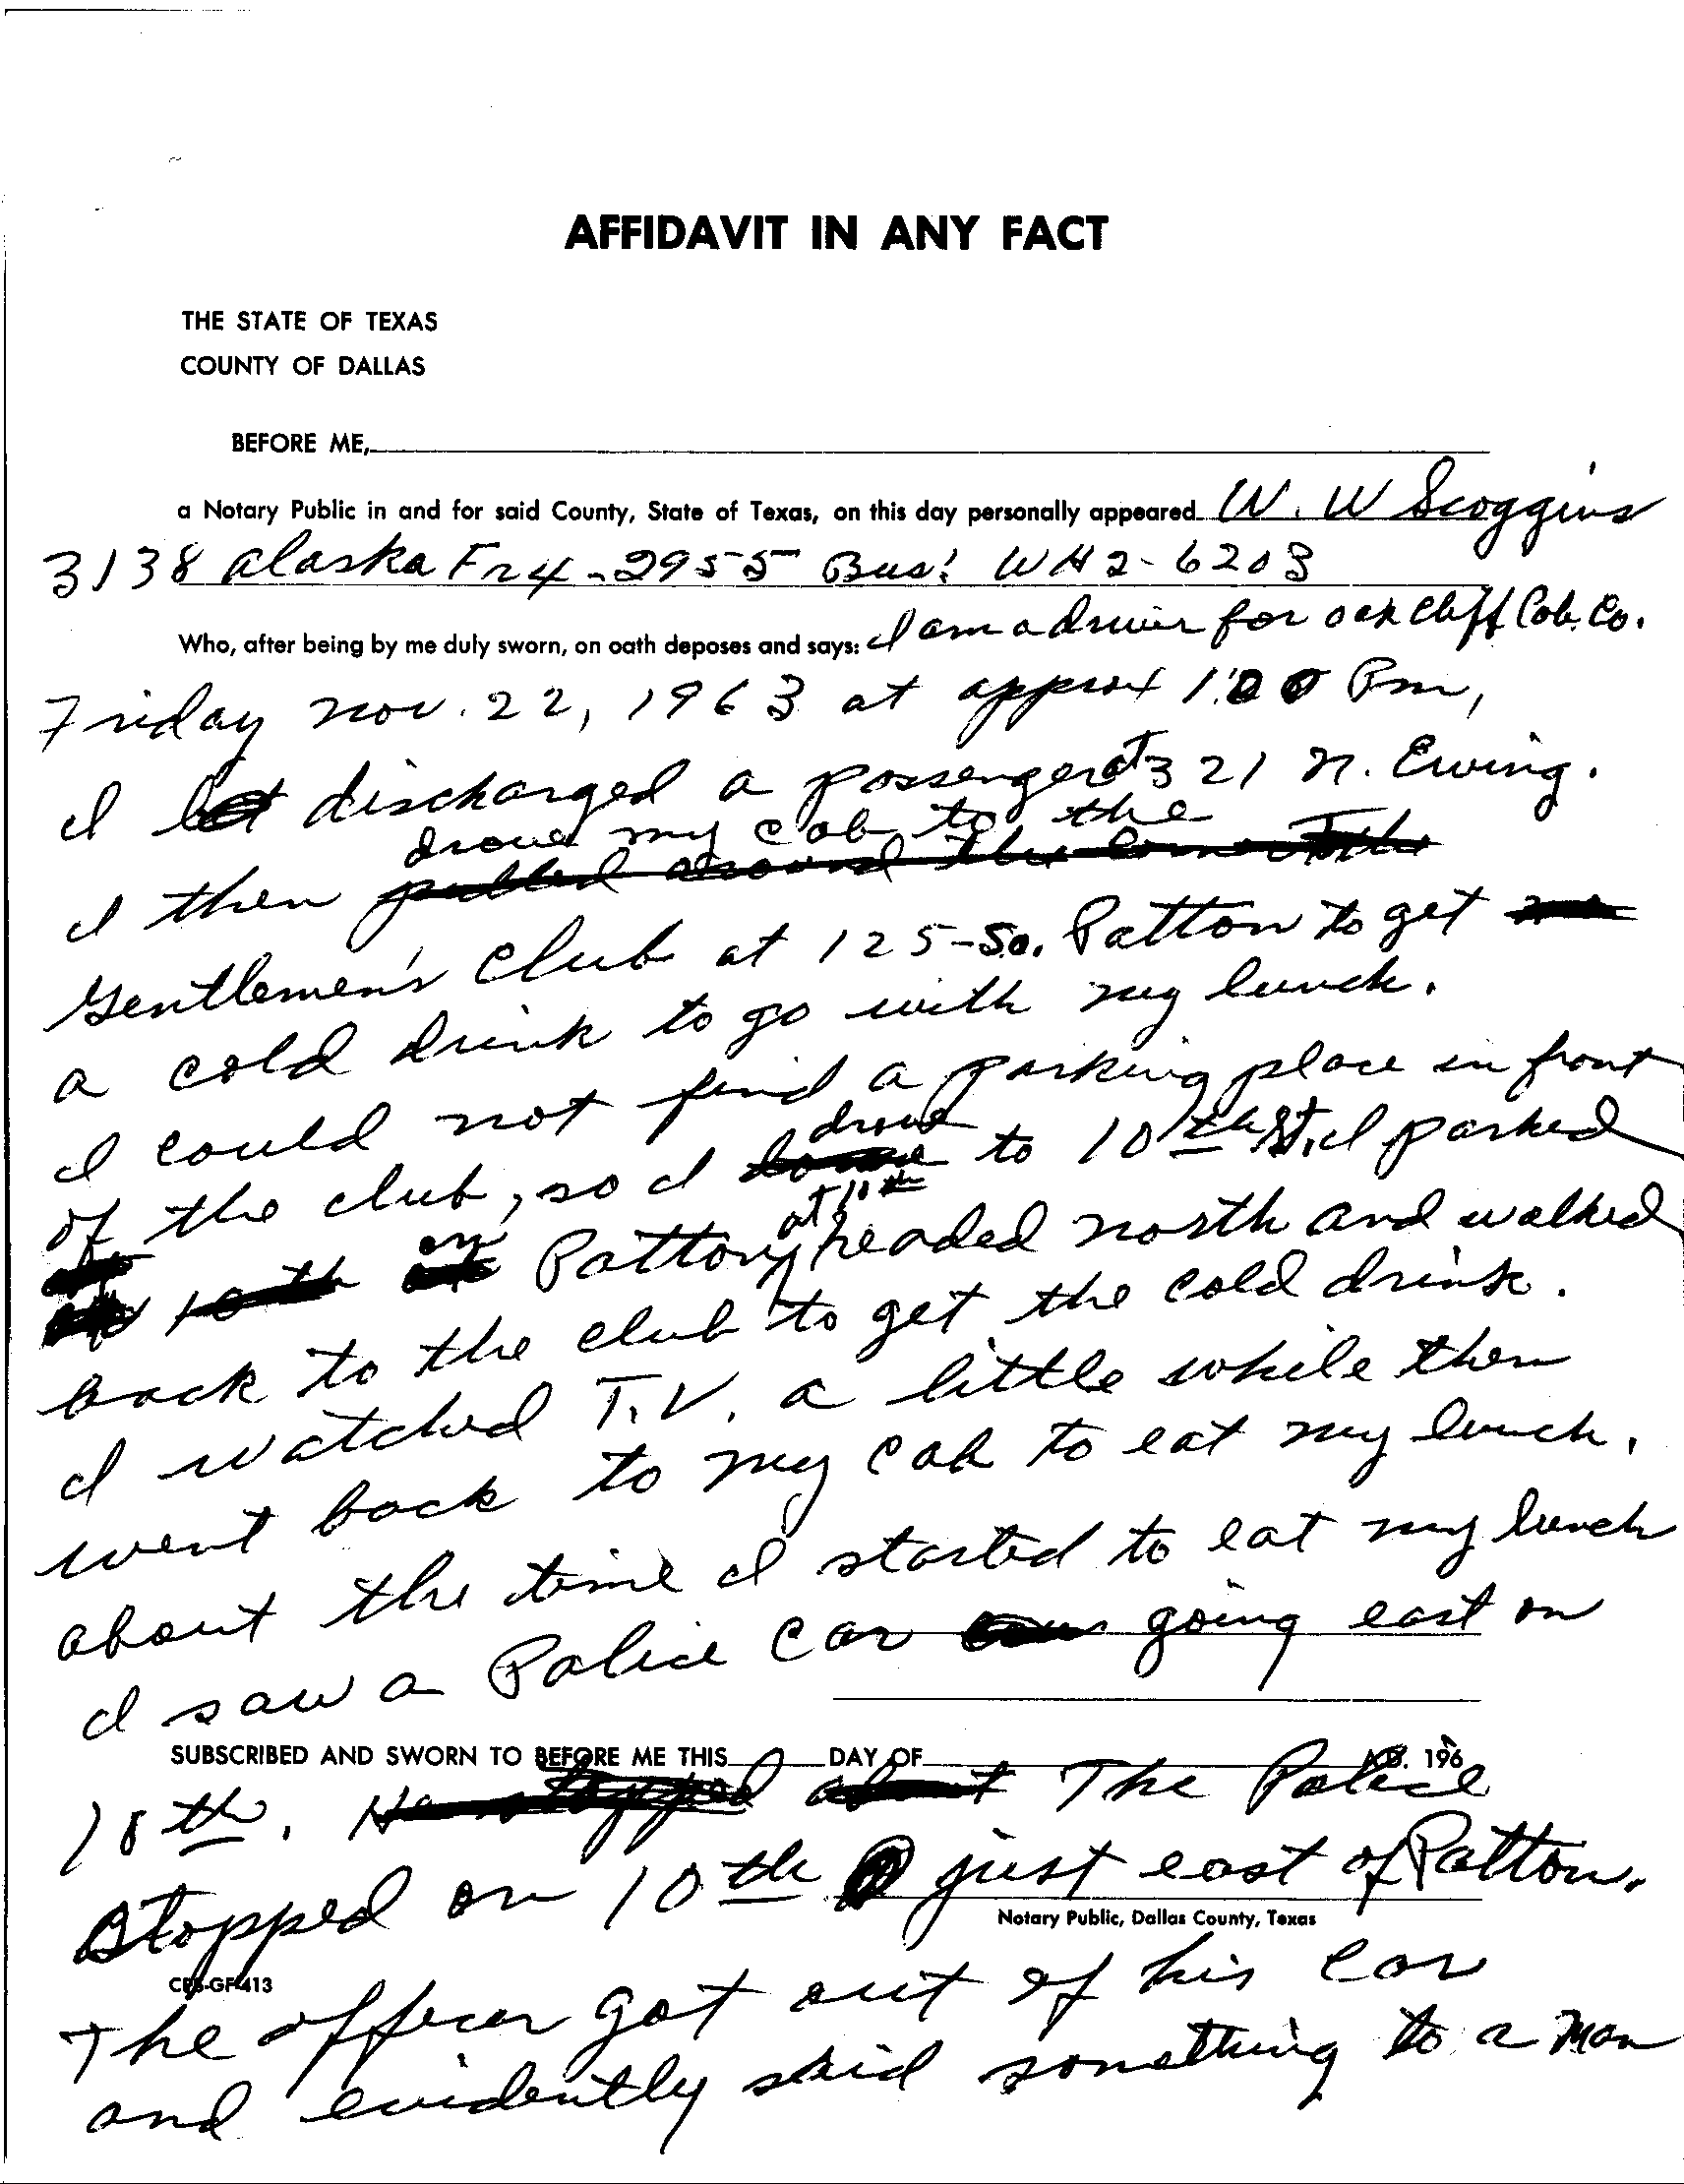 AFFIDAVIT IN ANY FACT
THE STATE OF TEXAS
COUNTY OF DALLAS
BEFORE ME,
a Notary Public in and for said County, State of Texas, on this day personally appeared W. W Scoggins
3138 Alaska Fr4-2955 Bus: WH2-6203
Who, after being by me duly sworn, on oath deposes and says: I am a driver for Oak Cliff Cab. Co.
Friday Nov. 22, 1963 at approx 1:00 Pm,
I let discharged a passenger at 321 N. Ewing.
drove my cab to the
I then pulled around the corner to the
Gentlemen's Club at 125-So. Patton to get
a cold drink to go with my lunch.
I could not find a parking place in front
drove
of the club, so I to 10th St, I parked
on at 10th
10th Patton, headed north and walked
back to the club to get the cold drink.
I watched T.V. a little while then
went back to my cab to eat my lunch.
about the time I started to eat my lunch
I saw a Police car going east on
SUBSCRIBED AND SWORN TO BEFORE ME THIS DAY OF A.D. 196
10th. He stopped about The Police
Stopped on 10th just east of Patton.
Notary Public, Dallas County, Texas
CPS-GF-413
The officer got out of his car
and evidently said something to a man